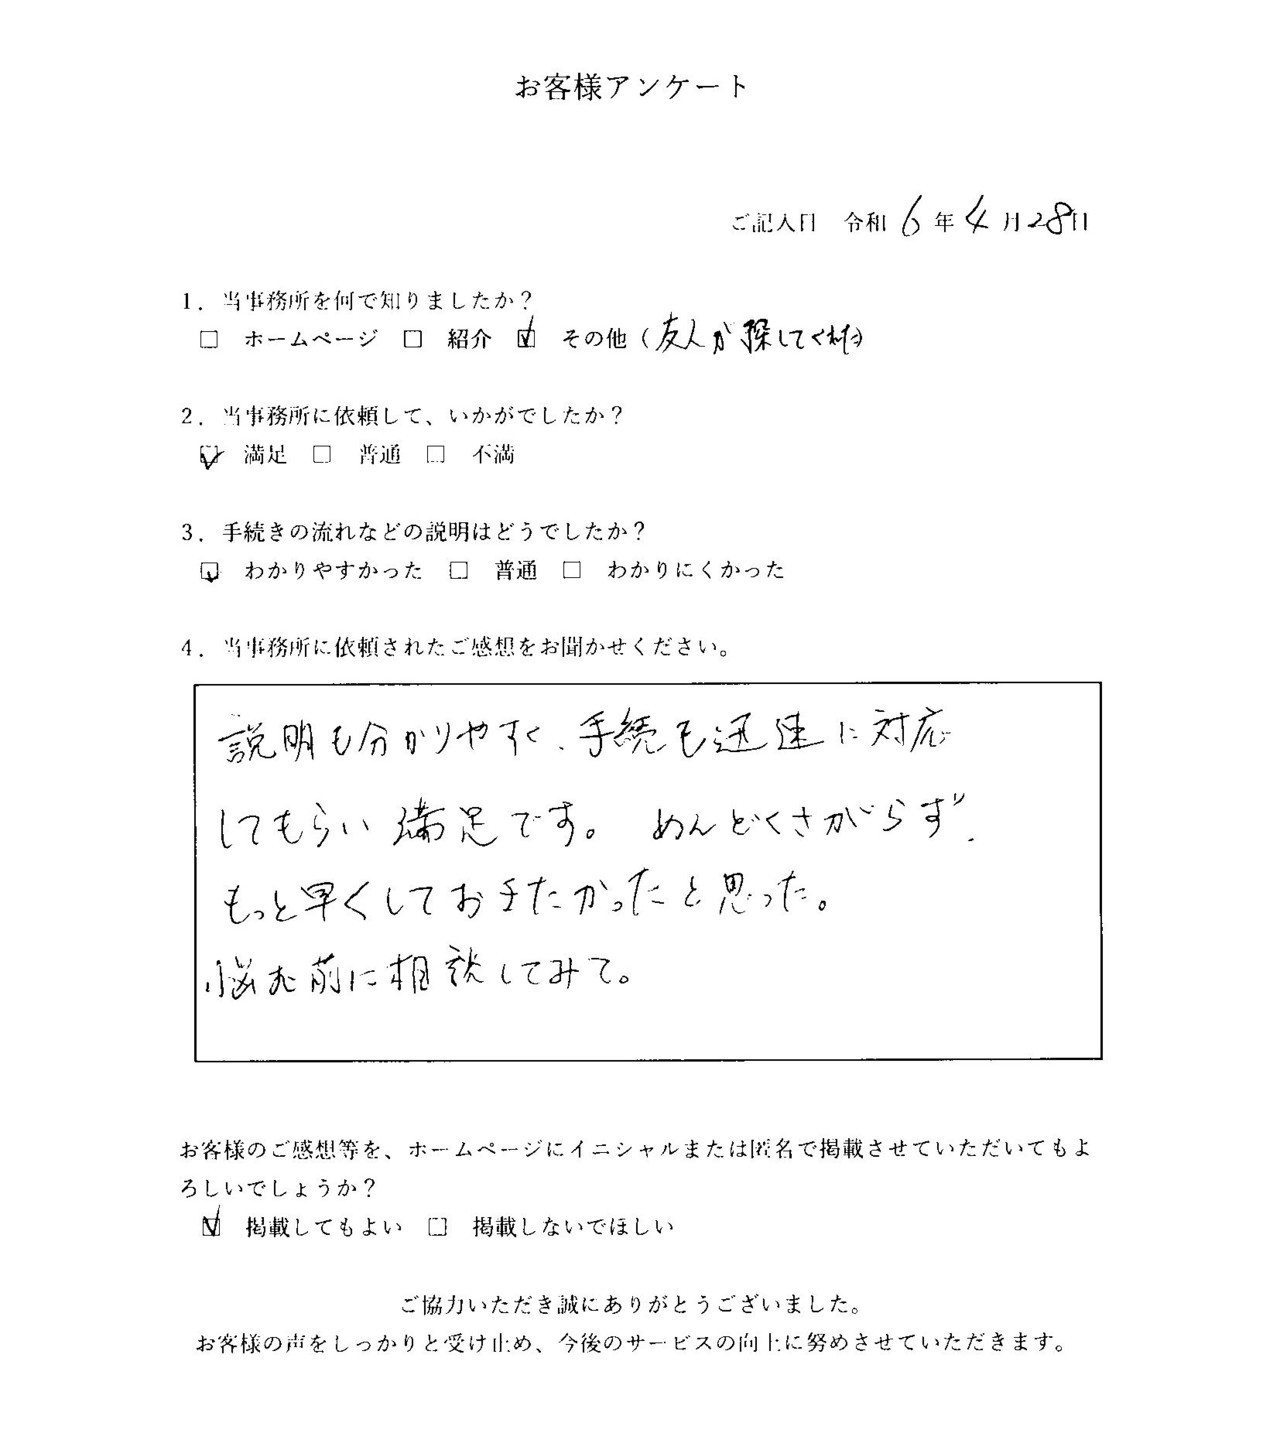 お客様アンケート
ご記入日 令和 6 年 4 月 28 日
1．当事務所を何で知りましたか？
□ ホームページ □ 紹介 ☑ その他（友人が探してくれた）
2．当事務所に依頼して、いかがでしたか？
☑ 満足 □ 普通 □ 不満
3．手続きの流れなどの説明はどうでしたか？
☑ わかりやすかった □ 普通 □ わかりにくかった
4．当事務所に依頼されたご感想をお聞かせください。
説明も分かりやすく、手続も迅速に対応
してもらい満足です。 めんどくさがらず、
もっと早くしておきたかったと思った。
悩む前に相談してみて。
お客様のご感想等を、ホームページにイニシャルまたは匿名で掲載させていただいてもよ
ろしいでしょうか？
☑ 掲載してもよい □ 掲載しないでほしい
ご協力いただき誠にありがとうございました。
お客様の声をしっかりと受け止め、今後のサービスの向上に努めさせていただきます。